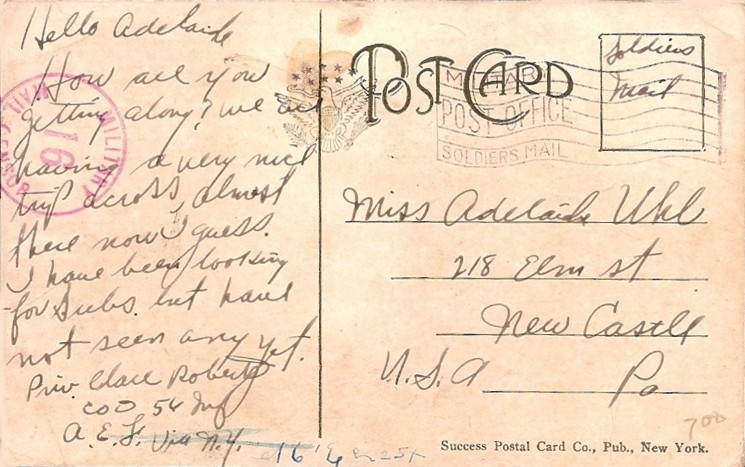 Hello Adelaide
How are you
getting along? we are
having a very nice
trip across, almost
there now I guess.
I have been looking
for Subs. but have
not seen any yet.
Priv. Clare Roberts
Co D 54 Inf
A.E.F. Via N.Y.
MILITARY MAIL CENSOR
16
POST CARD
MILITARY
POST OFFICE
SOLDIERS MAIL
Soldiers
Mail
Miss Adelaide Uhl
218 Elm st
New Castle
U.S.A Pa
700
Success Postal Card Co., Pub., New York.